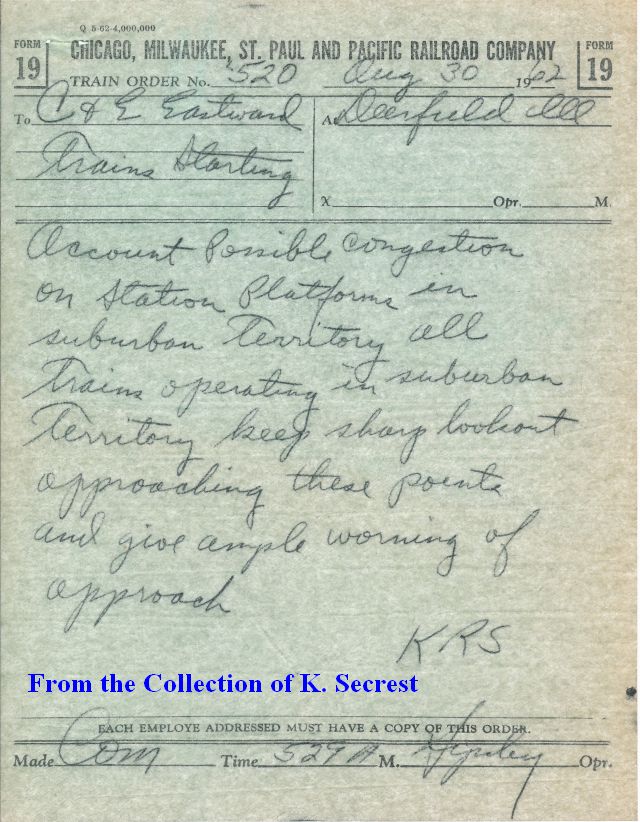 Q 5-62-4,000,000
FORM 19
CHICAGO, MILWAUKEE, ST. PAUL AND PACIFIC RAILROAD COMPANY
FORM 19
TRAIN ORDER No. 520 Aug 30 1962
To C & E Eastward
At Deerfield Ill
Trains Starting
X Opr. M.
Account Possible Congestion
on Station Platforms in
suburban Territory all
Trains operating in suburban
Territory keep sharp lookout
approaching these points
and give ample warning of
approach
KRS
From the Collection of K. Secrest
EACH EMPLOYE ADDRESSED MUST HAVE A COPY OF THIS ORDER.
Made Com Time 529 A M. Opr.